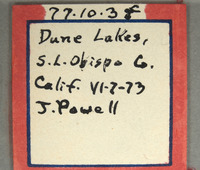 77.10.38
Dune Lakes,
S.L. Obispo Co.
Calif. VI-7-73
J. Powell